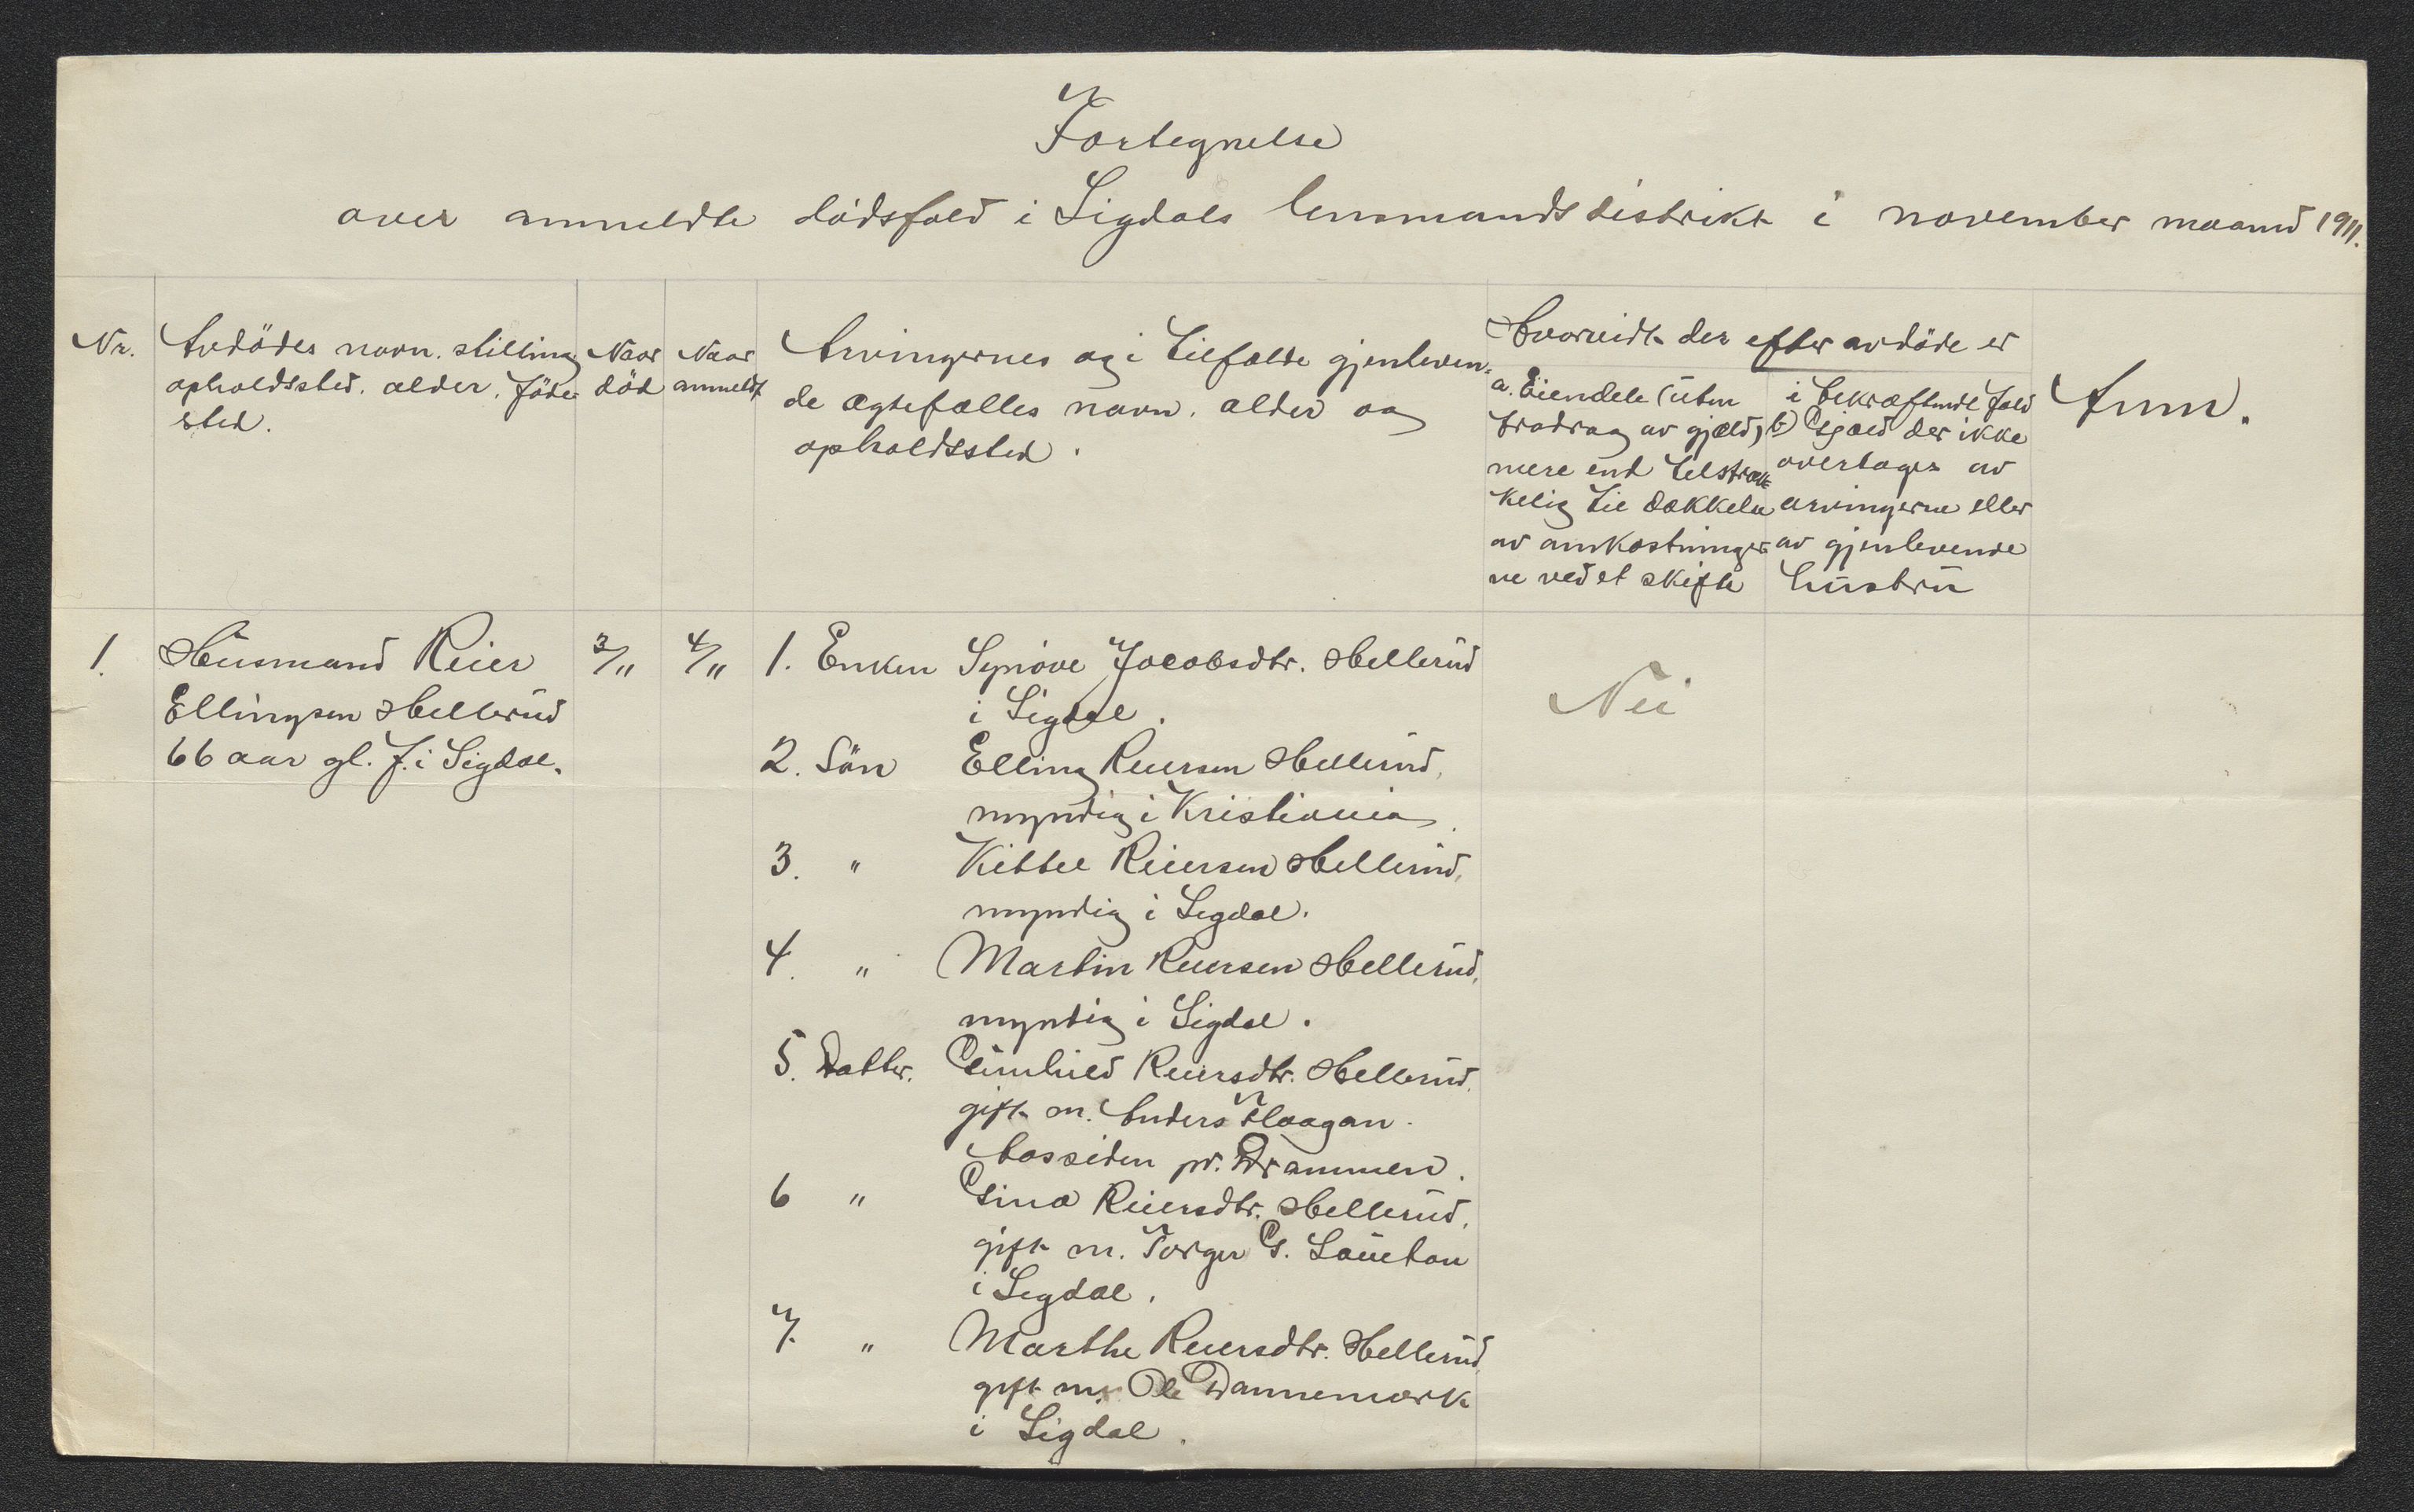 Fortegnelse
over anmeldte dödsfald i Sigdals lensmandsdistrikt i november maaned 1911.
Nr.
Avdödes navn. stilling
opholdssted. alder. föde
sted.
Naar
död
Naar
anmeldt
Arvingernes og i tilfælde gjenleven-
de ægtefælles navn. alder og
opholdssted.
Hvorvidt der efter avdöde er
a. Eiendele (uten
fradrag av gjæld)
mere end tilstræk
kelig til dækkelse
av omkostninger
ne ved et skifte
i bekræftende fald
b) Gjæld der ikke
overtages av
arvingerne eller
av gjenlevende
hustru
Anm.
1. Husmand Reier
Ellingsen Hellerud
66 aar gl. f. i Sigdal.
3/11
4/11
1. Enken Synöve Jacobsdtr. Hellerud
i Sigdal.
Nei
2. Sön Elling Reiersen Hellerud,
myndig i Kristiania
3. " Kittel Reiersen Hellerud,
myndig i Sigdal.
4. " Martin Reiersen Hellerud,
myndig i Sigdal.
5. Datter. Gunhild Reiersdtr. Hellerud.
gift m. Anders Flaagan.
Aassiden pr. Drammen.
6 " Gina Reiersdtr. Hellerud,
gift m. Torger G.
i Sigdal.
7. " Marthe Reiersdtr. Hellerud,
gift m. Ole Dannemark
i Sigdal.